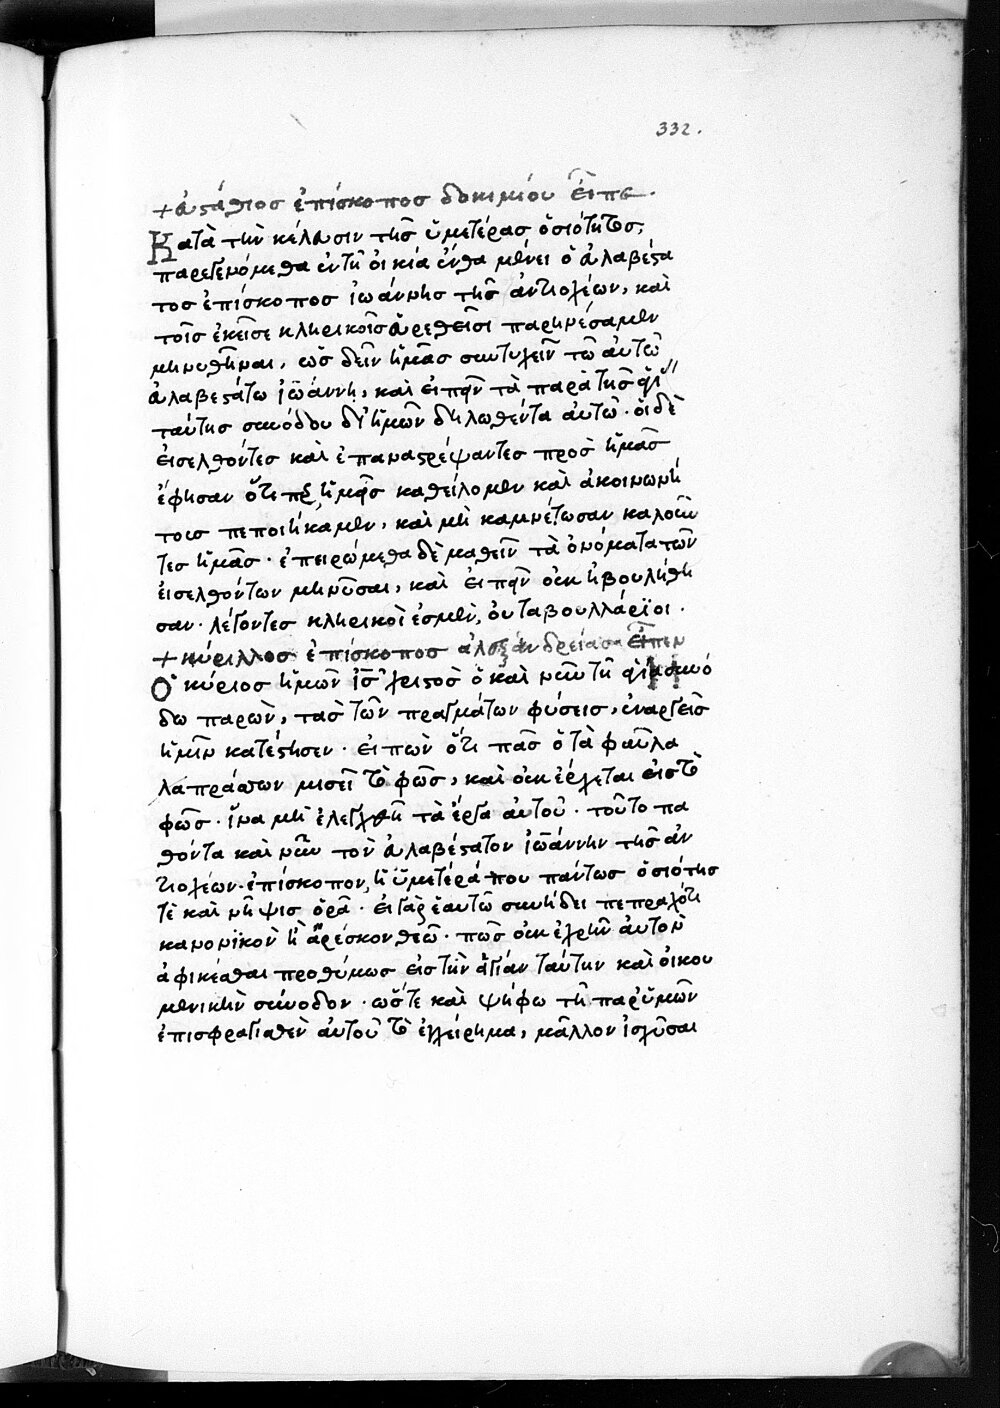 332.
+ ἀστάθιος ἐπίσκοπος δοκιμίου εἶπε.
Κατὰ τὴν κέλευσιν τῆς ὑμετέρας ὁσιότητος,
παρεγενόμεθα ἐν τῆ οἰκία ἔνθα μένει ὁ εὐλαβέστα
τος ἐπίσκοπος ἰωάννης τῆς ἀντιοχέων, καὶ
τοῖς ἐκεῖσε κληρικοῖς εὑρεθεῖσι παρηνέσαμεν
μηνυθῆναι, ὡς δεῖν ἡμᾶς συντυχεῖν τῶ αὐτῶ
εὐλαβεστάτω ἰωάννη, καὶ εἰπεῖν τὰ παρὰ τῆς ἁγί
ταύτης συνόδου δι' ἡμῶν δηλωθέντα αὐτῶ. οἱ δὲ
εἰσελθόντες καὶ ἐπαναστρέψαντες πρὸς ἡμᾶς
ἔφησαν ὅτι παρ' ἡμῖν καθείλομεν καὶ ἀκοινωνή
τους πεποιήκαμεν, καὶ μὴ καμνέτωσαν καλοῦν
τες ἡμᾶς. ἐπειρώμεθα δὲ μαθεῖν τὰ ὀνόματα τῶν
εἰσελθόντων μηνῦσαι, καὶ εἰπεῖν οὐκ ἠβουλήθη
σαν. λέγοντες κληρικοὶ ἐσμὲν, οὐ ταβουλλάριοι.
+ κύριλλος ἐπίσκοπος ἀλεξανδρείας εἶπεν
Ὁ κύριος ἡμῶν ἰς χριστὸς ὁ καὶ νῦν τῆ ἁγία συνό
δω παρὼν, τὰς τῶν πραγμάτων φύσεις, ἐναργεῖς
ἡμῖν κατέστησεν. εἰπὼν ὅτι πᾶς ὁ τὰ φαῦλα
λα πράσσων μισεῖ τὸ φῶς, καὶ οὐκ ἔρχεται εἰς τὸ
φῶς. ἵνα μὴ ἐλεγχθῆ τὰ ἔργα αὐτοῦ. τοῦτο πα
θόντα καὶ νῦν τὸν εὐλαβέστατον ἰωάννην τῆς ἀν
τιοχέων ἐπίσκοπον, ἡ ὑμετέρα που πάντως ὁσιότης
τὲ καὶ νῆψις ὁρᾶ. εἰ γὰρ ἑαυτῶ συνήδει πεπραχότι
κανονϊκὸν ἢ ἀρέσκον θεῶ. πῶς οὐκ ἐχρῆν αὐτὸν
ἀφικέσθαι προθύμως εἰς τὴν ἁγίαν ταύτην καὶ οἰκου
μενικὴν σύνοδον. ὥστε καὶ ψήφω τῆ παρ' ὑμῶν
ἐπισφραγισθὲν αὐτοῦ τὸ ἐγχείρημα, μᾶλλον ἰσχῦσαι